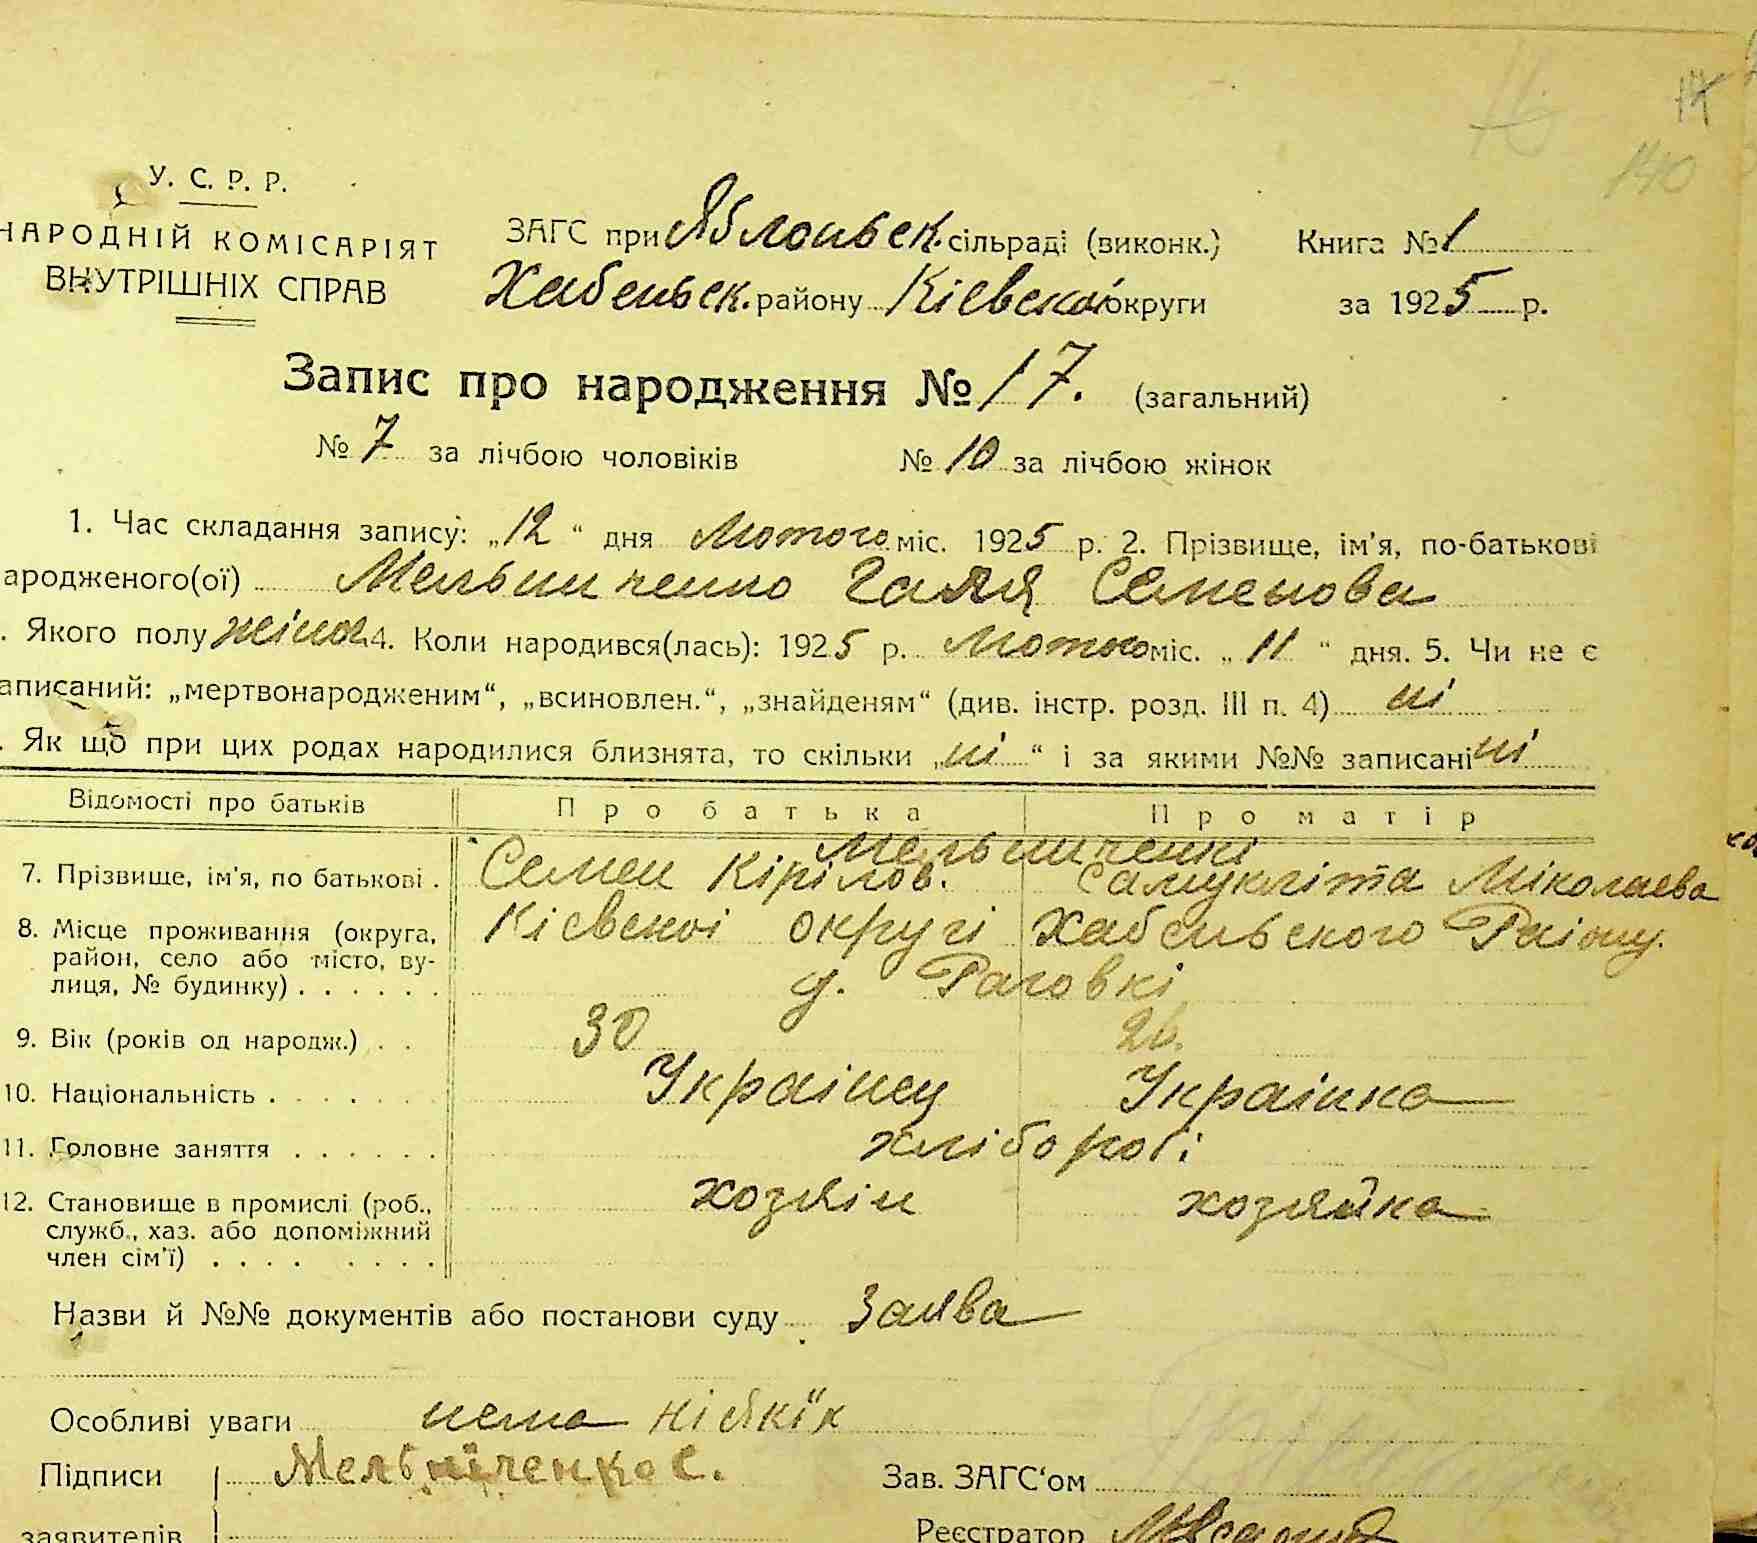 14
16
140
У. С. Р. Р.
НАРОДНІЙ КОМІСАРІЯТ
ВНУТРІШНІХ СПРАВ
ЗАГС при Яблоньск. сільраді (виконк.) Книга № 1
Хабеньск. району Кіевскоі округи за 1925 р.
Запис про народження № 17. (загальний)
№ 7 за лічбою чоловіків № 10 за лічбою жінок
1. Час складання запису: „12“ дня Лютого міс. 1925 р. 2. Прізвище, ім'я, по-батькові
ародженого(ої) Мельниченко Галя Семенова
. Якого полу жіноч. 4. Коли народився(лась): 1925 р. Лютого міс. „11“ дня. 5. Чи не є
аписаний: „мертвонародженим“, „всиновлен.“, „знайденям“ (див. інстр. розд. III п. 4) ні
. Як що при цих родах народилися близнята, то скільки „ні“ і за якими №№ записані ні
Відомості про батьків Про батька Про матір
Мельниченкі
7. Прізвище, ім'я, по батькові . Семен Кірілов. Самукліта Міколаева
8. Місце проживання (округа, район, село або місто, вулиця, № будинку) . . . . . . Кіевскоі округі Хабеньского Раіону.
Раговкі
9. Вік (років од народж.) . . 30 26.
10. Національність . . . . . . . Украінец Украінка
11. Головне заняття . . . . . . хлібороби
12. Становище в промислі (роб., служб., хаз. або допоміжний член сім'ї) . . . . . . . . хозяін хозяйка
Назви й №№ документів або постанови суду Заява
Особливі уваги нема ніякіх
Підписи Мельніченко С. Зав. ЗАГС'ом
заявителів Реєстратор